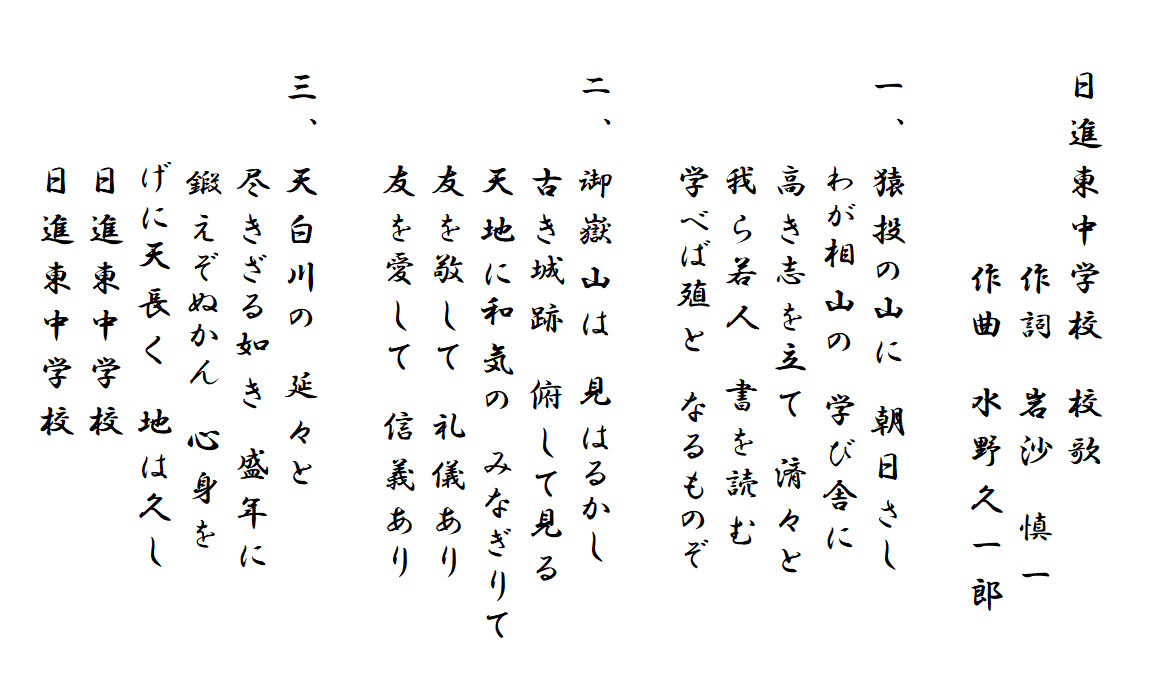 日進東中学校　校歌
作詞　岩沙　慎一
作曲　水野久一郎
一、猿投の山に　朝日さし
わが相山の　学び舎に
高き志を立て　済々と
我ら若人　書を読む
学べば殖と　なるものぞ
二、御嶽山は　見はるかし
古き城跡　俯して見る
天地に和気の　みなぎりて
友を敬して　礼儀あり
友を愛して　信義あり
三、天白川の　延々と
尽きざる如き　盛年に
鍛えぞぬかん　心身を
げに天長く　地は久し
日進東中学校
日進東中学校